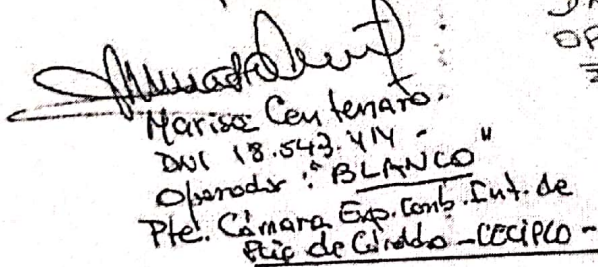 Marisa Centenaro.
DNI 18.543.414 -
Operador: "BLANCO"
Pte. Cámara Exp. Comb. Int. de
Pcia de Córdoba - CECIPCO -
OP